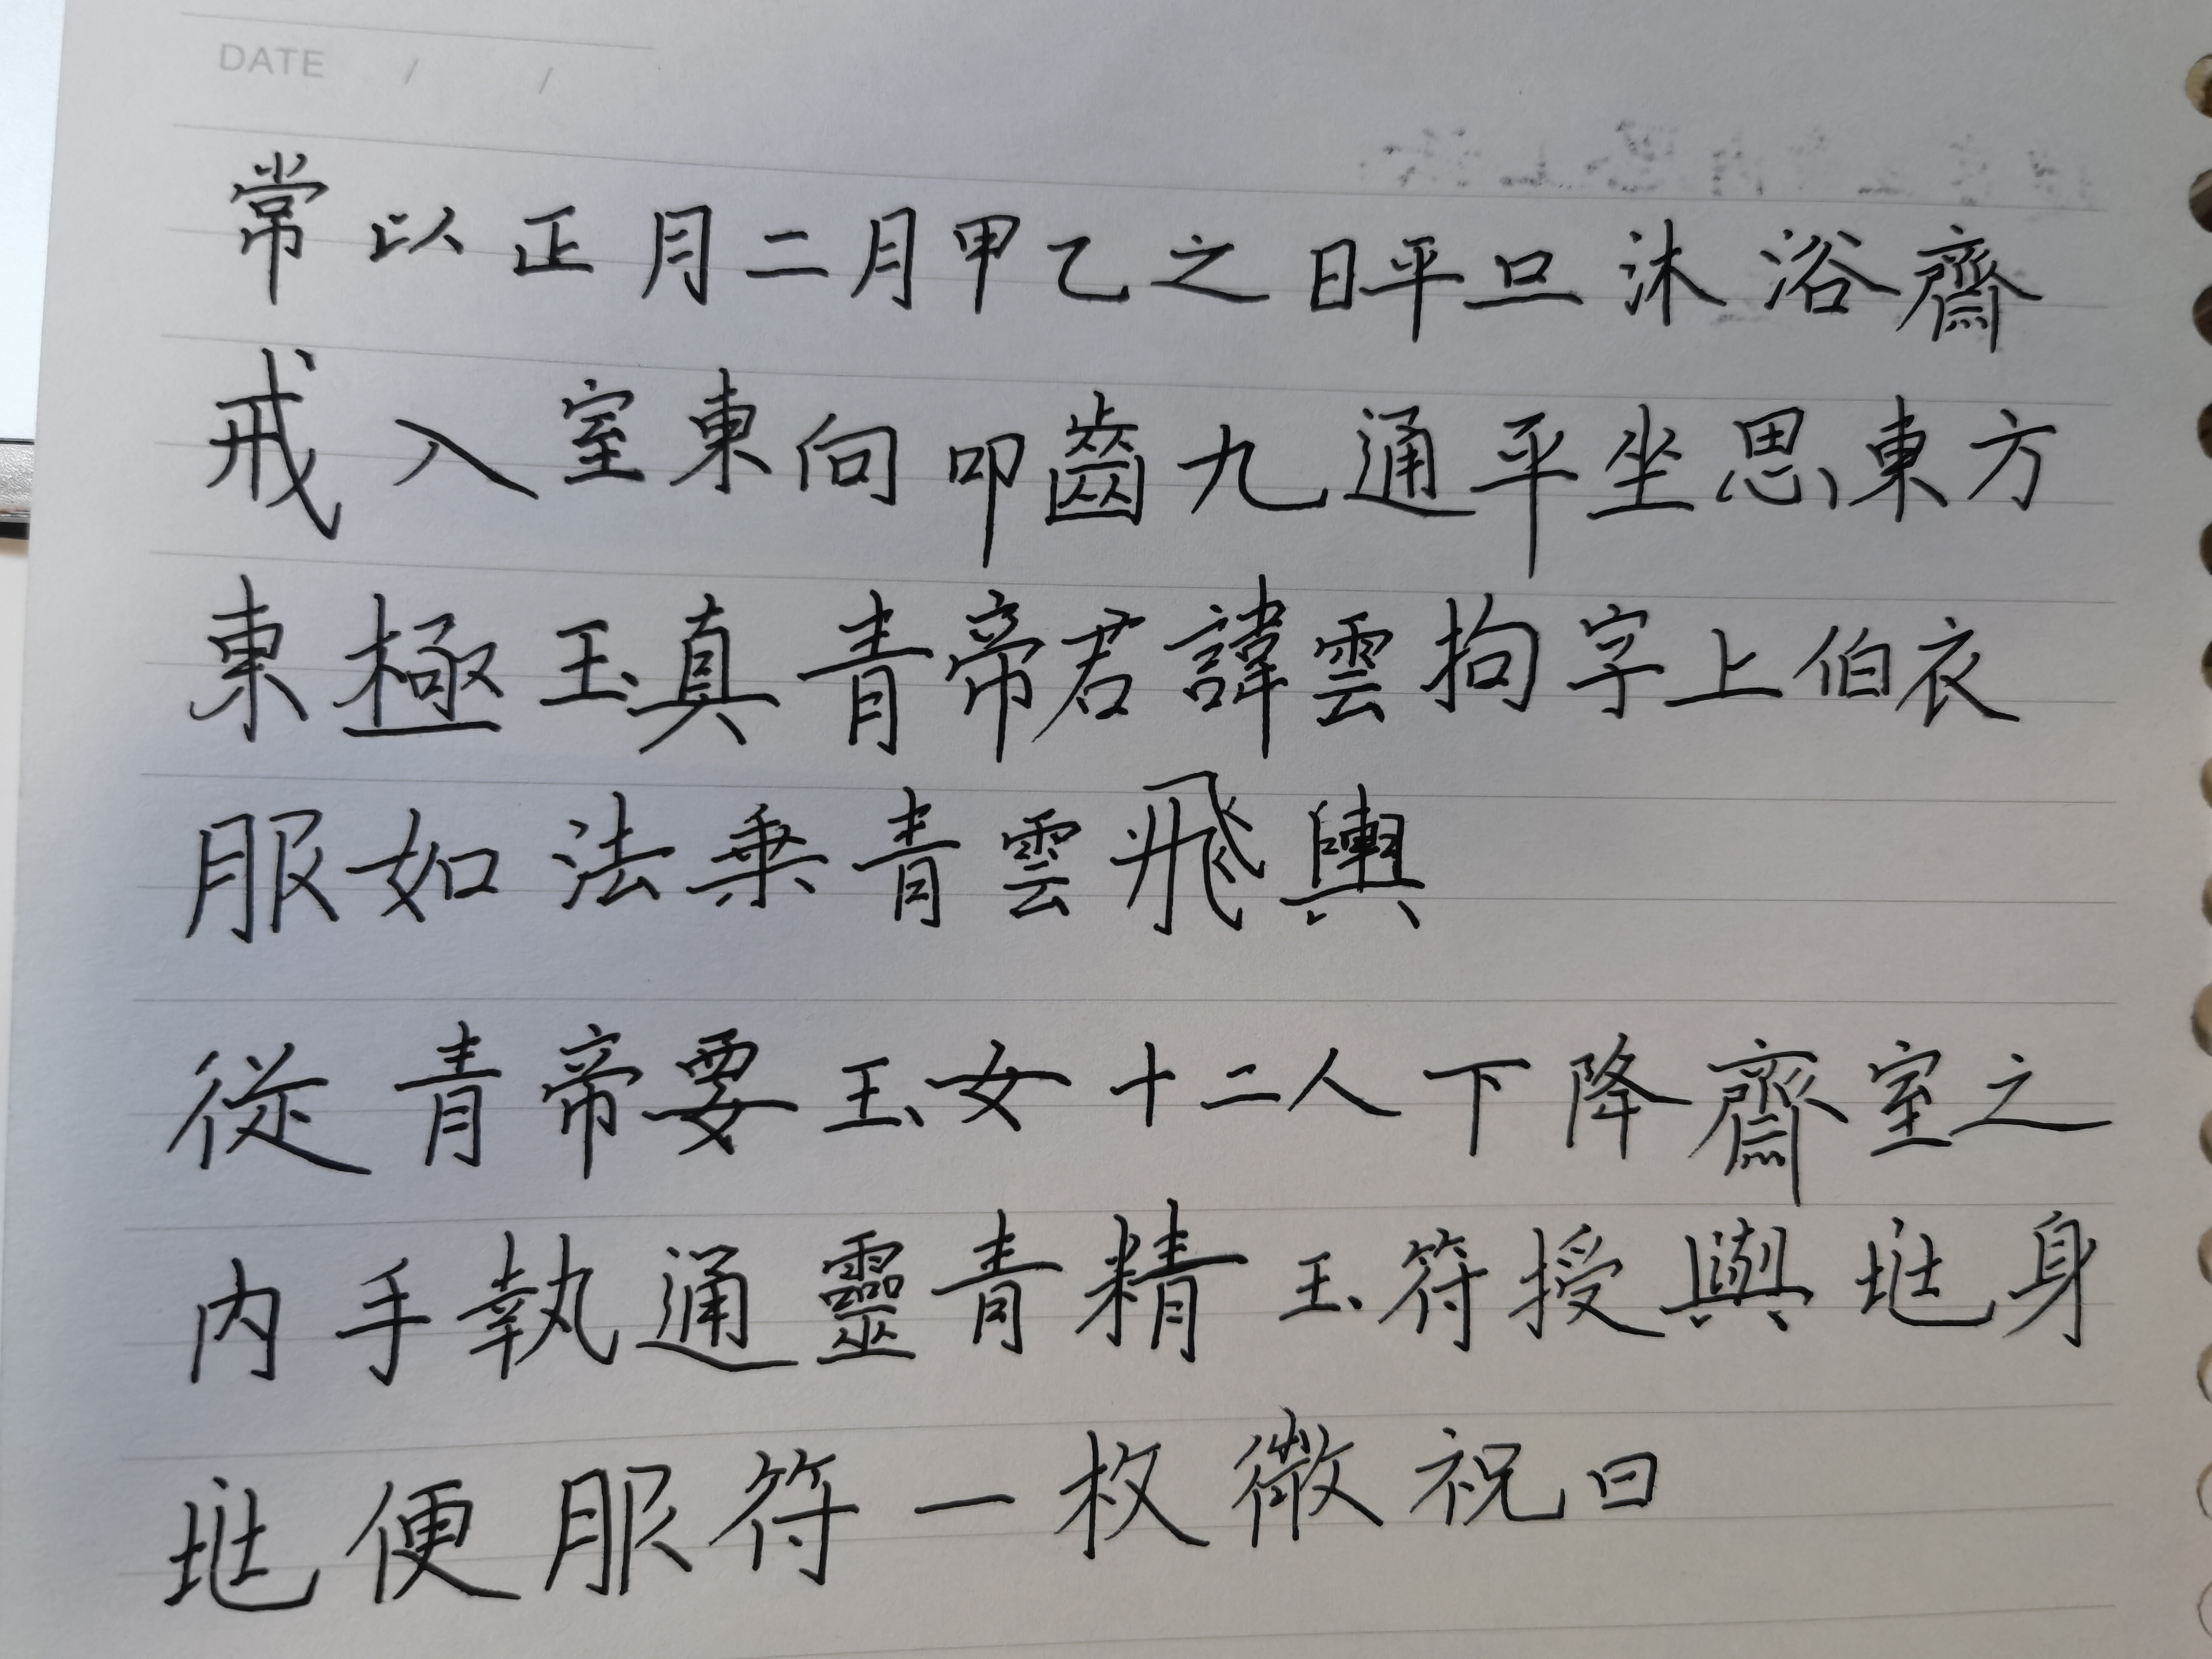 DATE / /
常以正月二月甲乙之日平旦沐浴齋
戒入室東向叩齒九通平坐思東方
東極玉真青帝君諱雲拘字上伯衣
服如法乗青雲飛輿
從青帝要玉女十二人下降齋室之
內手執通靈青精玉符授與兆身
兆便服符一枚微祝曰